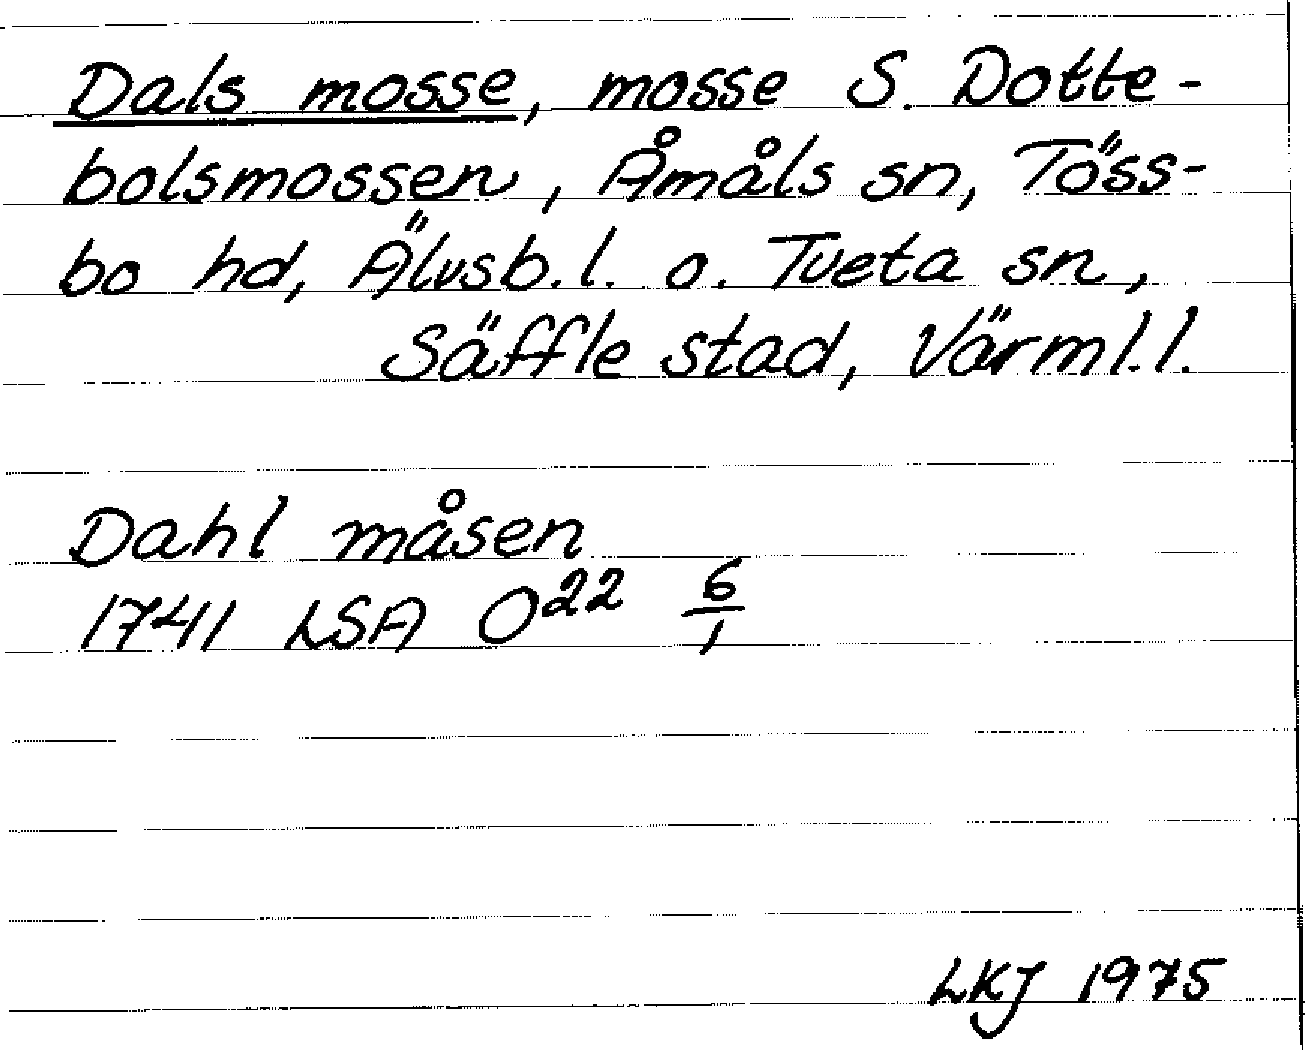 Dals mosse, mosse S. Dotte-
bolsmossen, Åmåls sn, Töss-
bo hd, Älvsb. l. o. Tveta sn,
Säffle stad, Värml. l.
Dahl måsen
1741 LSA O²² 6/1
LKJ 1975